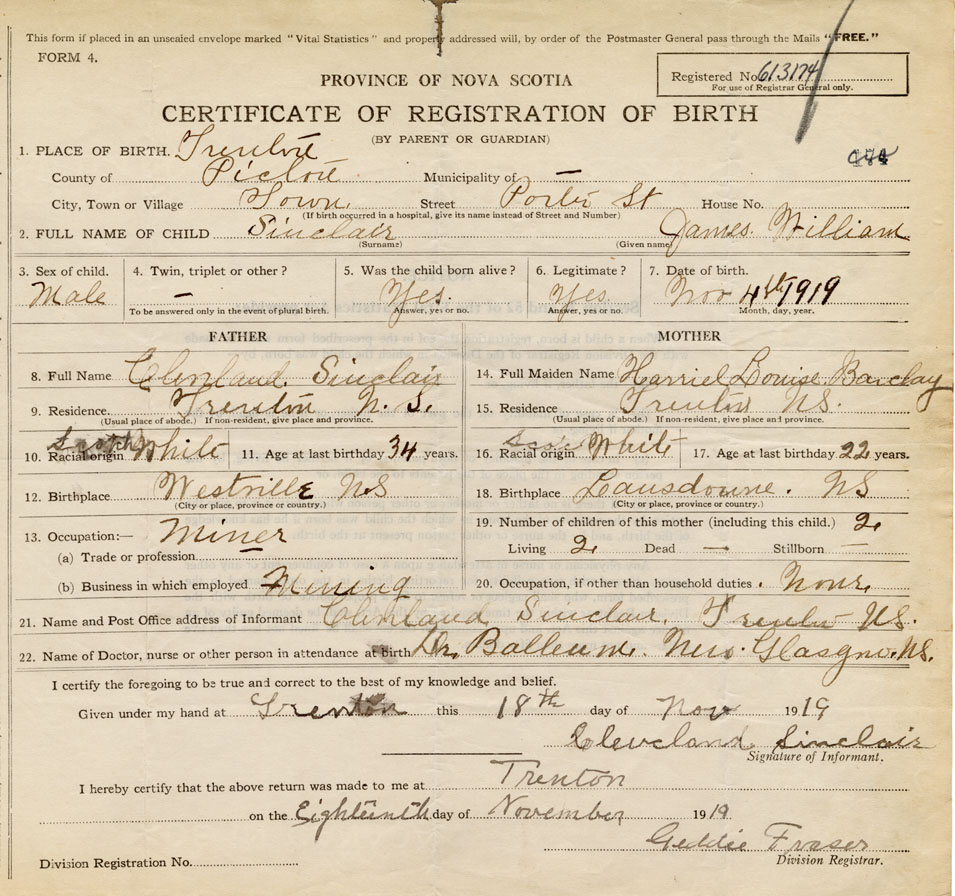 This form if placed in an unsealed envelope marked "Vital Statistics" and properly addressed will, by order of the Postmaster General pass through the Mails "FREE."
FORM 4.
PROVINCE OF NOVA SCOTIA
Registered No. 613174
For use of Registrar General only.
CERTIFICATE OF REGISTRATION OF BIRTH
(BY PARENT OR GUARDIAN)
1. PLACE OF BIRTH. Trenton
County of Pictou Municipality of —
City, Town or Village Town Street Porter St House No.
(If birth occurred in a hospital, give its name instead of Street and Number)
2. FULL NAME OF CHILD Sinclair James William
(Surname) (Given name)
3. Sex of child. 4. Twin, triplet or other? 5. Was the child born alive? 6. Legitimate? 7. Date of birth.
Male — Yes. Yes Nov 4th 1919
To be answered only in the event of plural birth. Answer, yes or no. Answer, yes or no. Month, day, year.
FATHER MOTHER
8. Full Name Clenland Sinclair 14. Full Maiden Name Harriel Louise Barclay
9. Residence. Trenton N.S. 15. Residence Trenton NS.
(Usual place of abode.) If non-resident, give place and province. (Usual place of abode.) If non-resident, give place and province.
10. Racial origin Scotch White 11. Age at last birthday 34 years. 16. Racial origin White 17. Age at last birthday 22 years.
12. Birthplace Westville NS 18. Birthplace Lansdowne. NS
(City or place, province or country.) (City or place, province or country.)
13. Occupation:— Miner 19. Number of children of this mother (including this child.) 2
(a) Trade or profession Living 2 Dead — Stillborn —
(b) Business in which employed Mining 20. Occupation, if other than household duties. None
21. Name and Post Office address of Informant Clenland Sinclair. Trenton NS.
22. Name of Doctor, nurse or other person in attendance at birth Dr. New Glasgow. NS.
I certify the foregoing to be true and correct to the best of my knowledge and belief.
Given under my hand at Trenton this 18th day of Nov 1919
Cleveland Sinclair
Signature of Informant.
I hereby certify that the above return was made to me at Trenton
on the Eighteenth day of November 1919
Geddie Fraser
Division Registrar.
Division Registration No.